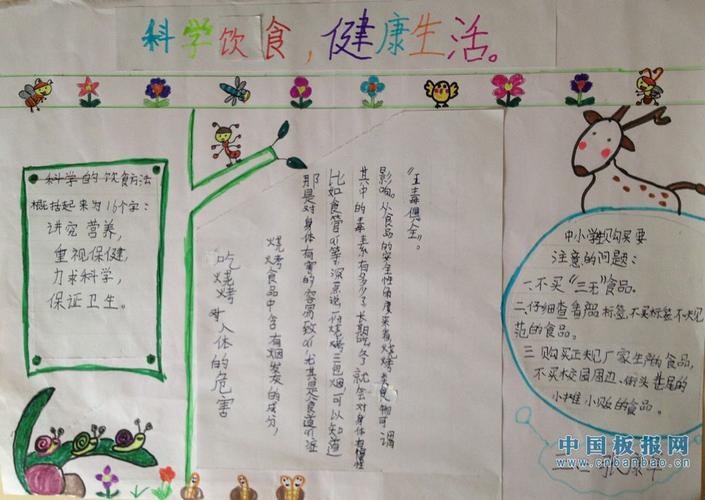 科学饮食，健康生活。
科学的饮食方法
概括起来为16个字：
讲究营养，
重视保健，
力求科学，
保证卫生。
吃烧烤对人体的危害
烧烤食品中含有烟发灰的成分，
那是对身体有害的容易致ai尤其是食道ai症
比如食管ai等，深点说一份烧烤三包烟可以知道
其中的毒素有多少了长期吃多就会对身体有慢性
影响。从食品的安全性角度来看烧烤类食物可谓
“五毒俱全”。
中小学生购买要
注意的问题：
一.不买“三无”食品。
二.仔细查看商品标签，不买标签不规
范的食品。
三.购买正规厂家生产的食品，
不买校园周边、街头巷尾的
小摊小贩的食品。
中国板报网
www.cnbanbao.cn